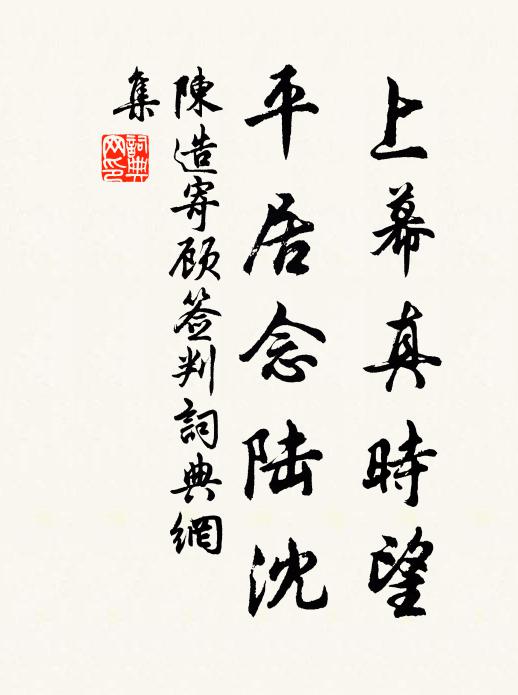 上幕真時望
平居念陆沈
陳造寄顾签判詞典網
集
詞典
网印